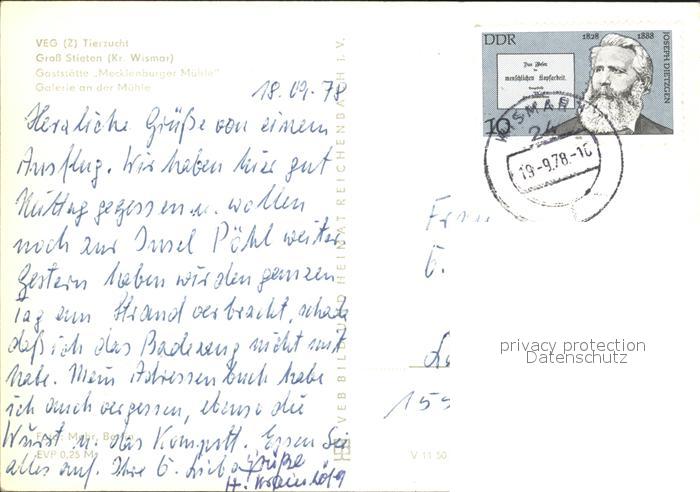 VEG (Z) Tierzucht
Groß Stieten (Kr. Wismar)
Gaststätte „Mecklenburger Mühle"
Galerie an der Mühle
18.09.78
Herzliche Grüße von einem
Ausflug. Wir haben hier gut
Mittag gegessen u. wollen
noch zur Insel Pöhl weiter
Gestern haben wir den ganzen
Tag am Strand verbracht, schade
daß ich das Badezeug nicht mit
habe. Mein Adressenbuch habe
ich auch vergessen, ebenso die
Wurst u. das Kompott. Essen Sie
alles auf. Ihre G.
Grüße
H.
Foto: Mohr, Berlin
EVP 0,25 M
VEB BILD UND HEIMAT REICHENBACH I. V.
V 11 50
DDR
1828 1888
JOSEPH DIETZGEN
Das Wesen
der
menschlichen Kopfarbeit.
10
WISMAR 1
24
19.-9.78.-16
Frau
G.
155
privacy protection
Datenschutz